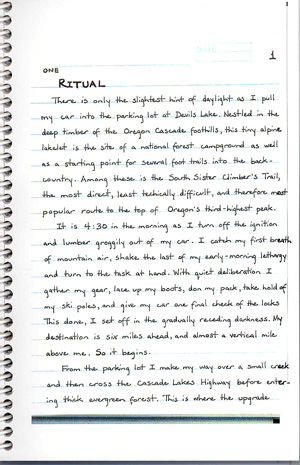 1
ONE
RITUAL
There is only the slightest hint of daylight as I pull
my car into the parking lot at Devils Lake. Nestled in the
deep timber of the Oregon Cascade foothills, this tiny alpine
lakelet is the site of a national forest campground as well
as a starting point for several foot trails into the back-
country. Among these is the South Sister Climber's Trail,
the most direct, least techically difficult, and therefore most
popular route to the top of Oregon's third-highest peak.
It is 4:30 in the morning as I turn off the ignition
and lumber groggily out of my car. I catch my first breath
of mountain air, shake the last of my early-morning lethargy
and turn to the task at hand. With quiet deliberation I
gather my gear, lace up my boots, don my pack, take hold of
my ski poles, and give my car one final check of the locks
This done, I set off in the gradually receding darkness. My
destination is six miles ahead, and almost a vertical mile
above me. So it begins.
From the parking lot I make my way over a small creek
and then cross the Cascade Lakes Highway before enter-
ing thick evergreen forest. This is where the upgrade